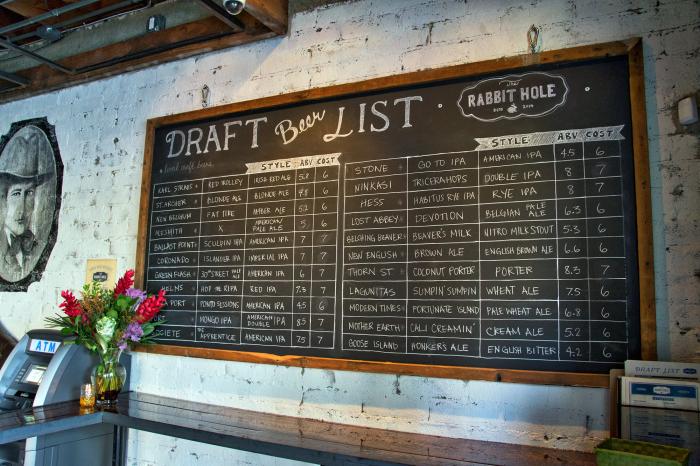 DRAFT Beer LIST
THE
RABBIT HOLE
ESTD 2014
local craft beers
STYLE ABV COST
KARL STRAUSS • RED TROLLEY IRISH RED ALE 5.8 6
ST. ARCHER • BLONDE ALE BLONDE ALE 4.8 6
NEW BELGIUM FAT TIRE AMBER ALE 6
ALESMITH • X AMERICAN/PALE ALE 6
BALLAST POINT • SCULPIN IPA AMERICAN IPA 7 7
CORONADO • ISLANDER IPA IMPERIAL IPA 7 7
GREEN FLASH • 30TH STREET AMERICAN IPA 6 7
HELMS • HOP THE RIPA RED IPA 7.3 7
PORT PONTO SESSIONS AMERICAN IPA 4.5 6
MONGO IPA AMERICAN DOUBLE IPA 8.5 7
SOCIETE THE APPRENTICE AMERICAN IPA 7.5 7
STYLE ABV COST
STONE • GO TO IPA AMERICAN IPA 4.5 6
NINKASI TRICERAHOPS DOUBLE IPA 8 7
HESS • HABITUS RYE IPA RYE IPA 8 7
LOST ABBEY • DEVOTION BELGIAN PALE ALE 6.3 6
BELCHING BEAVER • BEAVER'S MILK NITRO MILK STOUT 5.3 6
NEW ENGLISH • BROWN ALE ENGLISH BROWN ALE 6.6 6
THORN ST • COCONUT PORTER PORTER 8.3 7
LAGUNITAS SUMPIN' SUMPIN WHEAT ALE 7.5 6
MODERN TIMES • FORTUNATE ISLAND PALE WHEAT ALE 6.8 6
MOTHER EARTH • CALI CREAMIN' CREAM ALE 5.2 6
GOOSE ISLAND HONKER'S ALE ENGLISH BITTER 4.2 6
ATM
RABBIT HOLE
DRAFT LIST